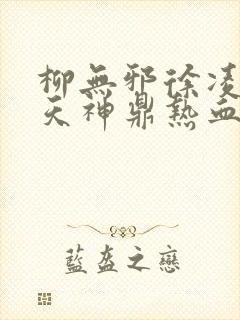 柳無邪徐凌
天神鼎熱血
藍盔之戀